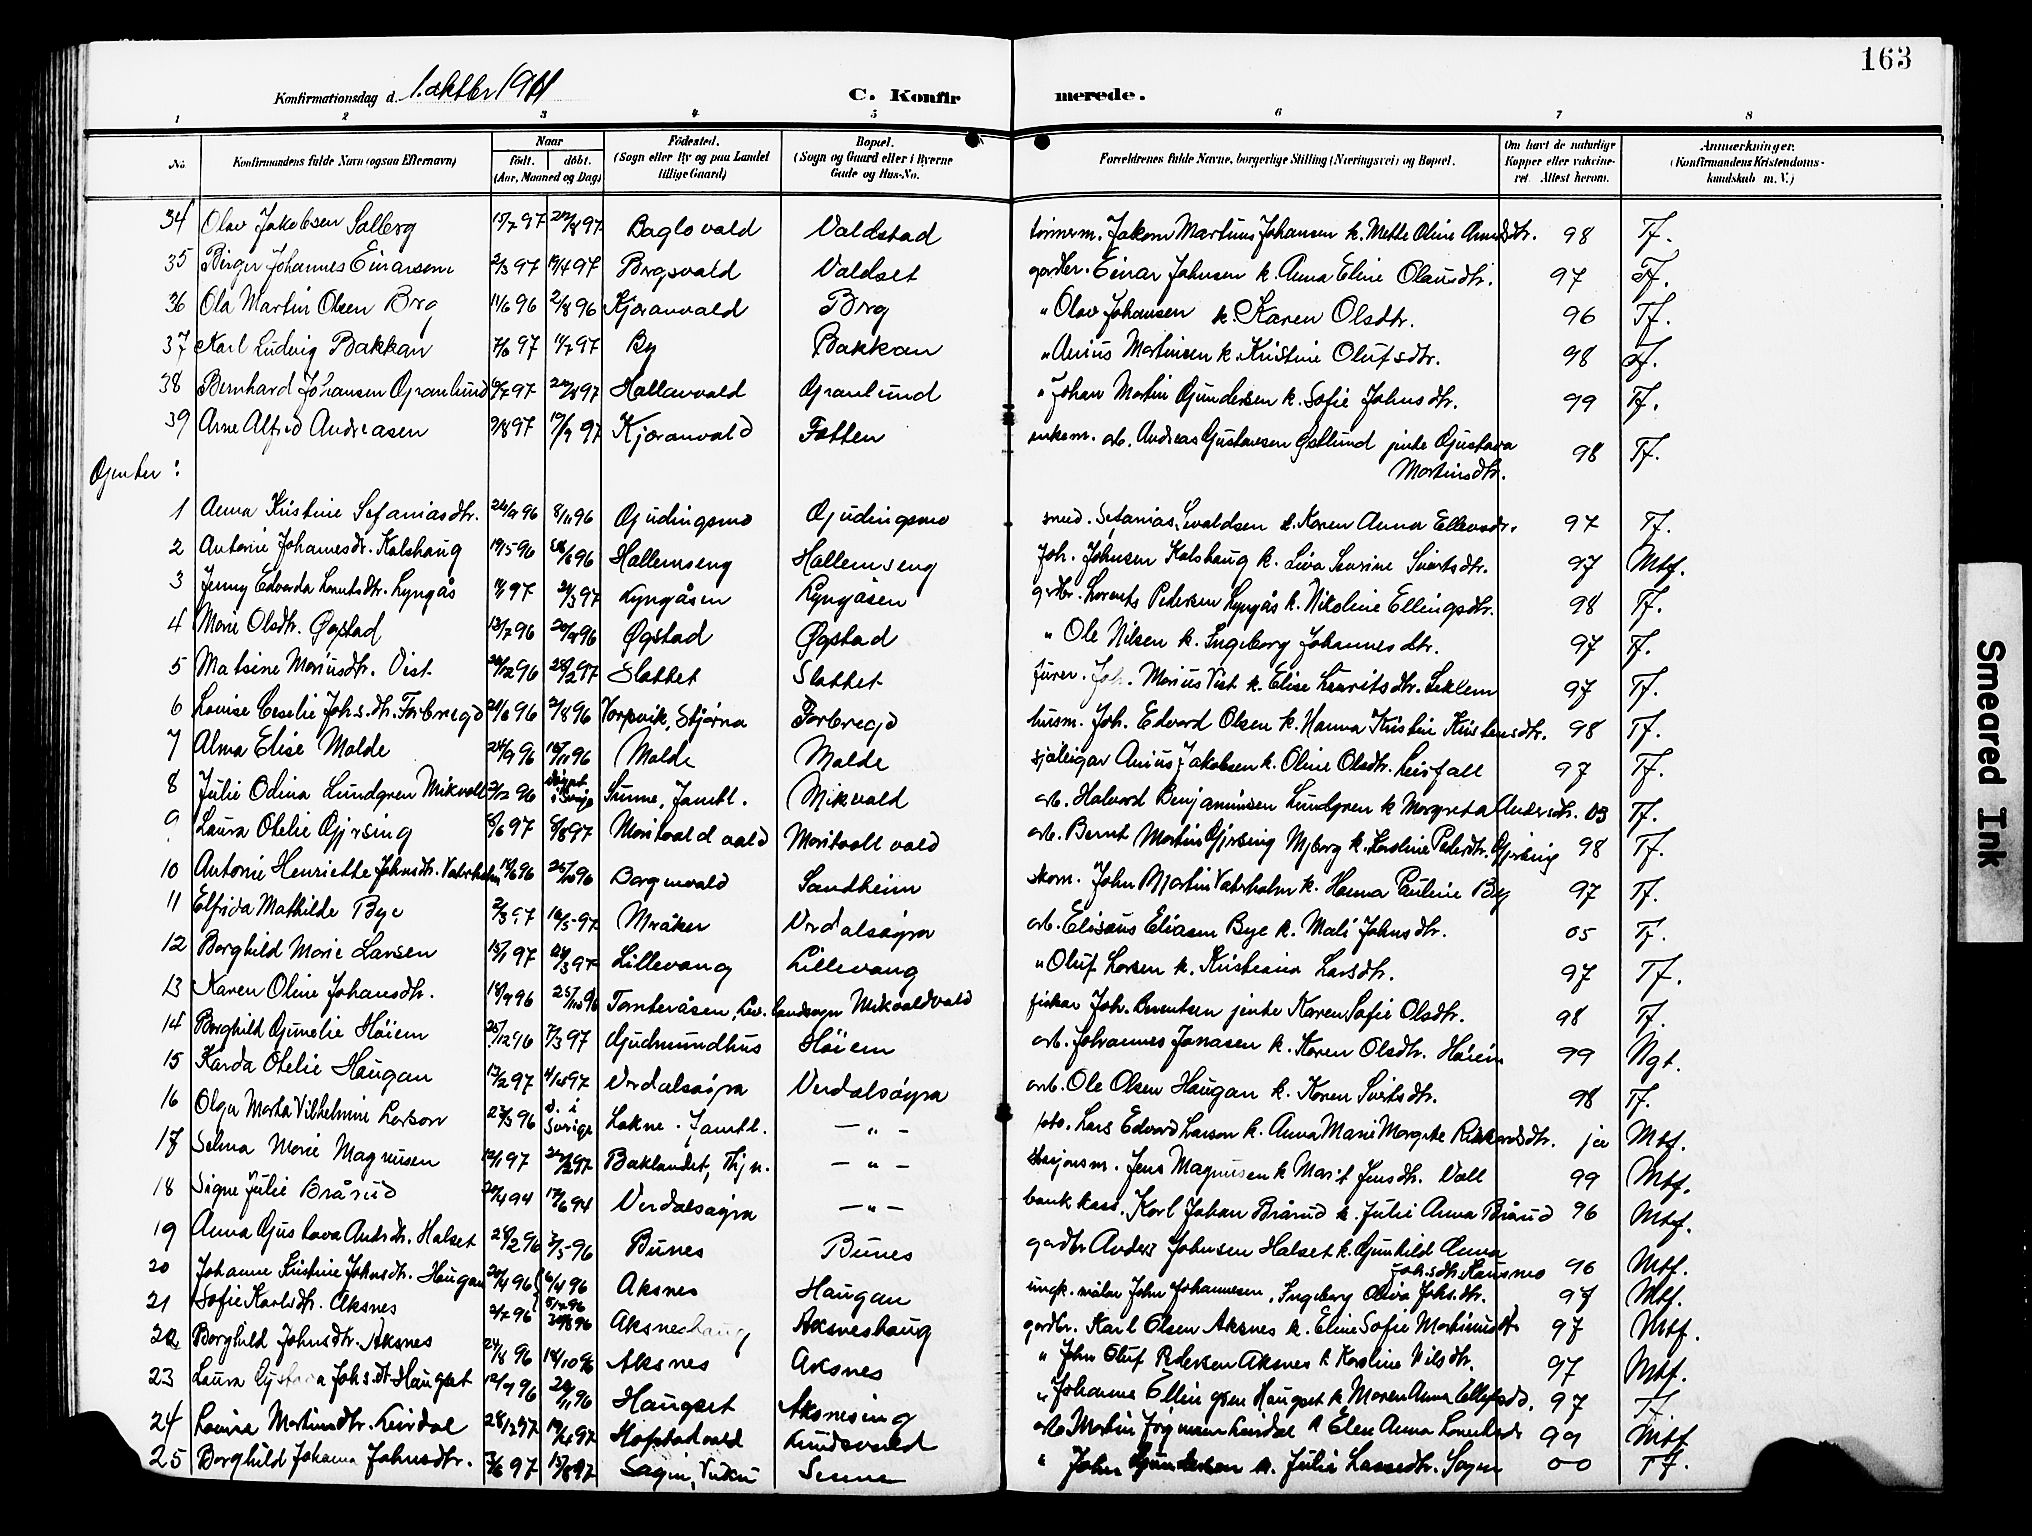 163
Konfirmationsdag d. 1. oktber 1911
C. Konfirmerede.
1 2 3 4 5 6 7 8
No
Konfirmandens fulde Navn (ogsaa Efternavn)
Naar
født. døbt.
(Aar, Maaned og Dag)
Fødested.
(Sogn eller By og paa Landet
tillige Gaard)
Bopæl.
(Sogn og Gaard eller i Byerne
Gade og Hus-No.
Forældrenes fulde Navne, borgerlige Stilling (Næringsvei) og Bopæl.
Om havt de naturlige
Kopper eller vaksine-
ret. Attest herom.
Anmærkninger.
(Konfirmandens Kristendoms-
kundskab m. V.)
34 Olav Jakobsen Solberg 15/7 97 22/8 97 Baglovald Valdstad tømmerm. Jakom Martinus Johansen k. Mette Oline Arntsdtr. 98 Tf.
35 Birger Johannes Einarsen 2/3 97 19/4 97 Borgsvald Valdset gardbr. Einar Johnsen k. Anna Eline Olausdtr. 97 Tf.
36 Ola Martin Olsen Brg 11/6 96 2/8 96 Kjøranvald Brg " Olav Johansen k. Karen Olsdtr. 96 Tf.
37 Karl Ludvig Bakkan 7/6 97 11/7 97 By Bakkan " Anius Martinsen k. Kristine Olufsdtr. 98 Tf.
38 Bernhard Johansen Granlund 10/7 97 22/8 97 Hallanvald Granlund " Johan Martin Gundersen k. Sofie Johnsdtr. 99 Tf.
39 Arne Alfred Andreasen 9/8 97 19/9 97 Kjøranvald Fætten enkem. arb. Andreas Gustavsen Østlund jente Gustava
Martinsdtr. 98 Tf.
Gjenter:
1 Anna Kristine Stefaniasdtr. 24/9 96 8/11 96 Gjudingsmo Gjudingsmo smed. Stefanias Sevaldsen k. Karen Anna Ellevsdtr. 97 Tf.
2 Antonie Johannesdtr. Kolshaug 19/5 96 96 Hallemseng Hallemseng Joh. Johnsen Kolshaug k. Liva Sevrine Sivertsdtr. 97 Mtf.
3 Jenny Edvarda Lorntsdtr. Lyngås 97 21/3 97 Lyngåsen Lyngåsen gardbr. Lornts Pedersen Lyngås k. Nikoline Ellingsdtr. 98 Tf.
4 Marie Olsdtr. Øgstad 13/7 96 20/9 96 Øgstad Øgstad " Ole Nilsen k. Ingeborg Johannesdtr. 97 Tf.
5 Matsine Mariusdtr. Vist 20/12 96 28/2 97 Slottet Slottet furer. Joh. Marius Vist k. Elise Lauritsdtr. Seklem 97 Tf.
6 Lovise Ceselie Johs.dtr. Forbregd 21/6 96 2/8 96 Vorpvik, Stjørna Forbregd husm. Joh. Edvard Olsen k. Hanna Kristine Kristensdtr. 98 Tf.
7 Alma Elise Molde 24/9 96 15/11 96 Molde Molde sjøleigar Anius Jakobsen k. Oline Olsdtr. Leirfall 97 Tf.
8 Julie Odina Lundgren Mikvoll 2/12 96 døypt i Sverige Sunne, Jamtl. Mikvold arb. Halvard Benjaminsen Lundgren k Margreta Andersdtr. 03 Tf.
9 Laura Otelie Gjersing 8/6 97 8/8 97 Moritvold vald Moritvoll vald arb. Bernt Martin Gjersing Mjberg k. Karoline Pedersdtr. Gjersing 98 Tf.
10 Antonie Henriette Johnsdtr. Vatrholm 18/6 96 25/10 96 Borgenvald Sandheim skom. John Martin Vatrholm k. Hanna Pauline By 97 Tf.
11 Elfrida Mathilde Bye 2/3 97 16/5 97 Meråker Verdalsøyra arb. Elisæus Eliasen Bye k. Mali Johnsdtr. 05 Tf.
12 Borghild Marie Larsen 15/1 97 21/3 97 Lillevang Lillevang " Oluf Larsen k. Kristiana Larsdtr. 97 Tf.
13 Karen Oline Johansdtr. 18/9 96 25/10 96 Tomteråsen, Lev. landsogn Mikvoldvald fiskar Joh. Berentsen jente Karen Sofie Olsdtr. 98 Tf.
14 Borghild Gunelie Høiem 25/12 96 7/3 97 Gudmundhus Høiem arb. Johannes Jonasen k. Karen Olsdtr. Høiem 99 Ngt.
15 Karda Otelie Haugan 13/2 97 4/4 97 Verdalsøyra Verdalsøyra arb. Ole Olsen Haugan k. Karen Sivertsdtr. 98 Tf.
16 Olga Marta Vilhelmine Larson 23/3 96 d. i Sverige Lokne. Jamtl. — " — foto. Lars Edvard Larson k. Anna Marie Margrete Rikardsdtr. ja Mtf.
17 Selma Marie Magnusen 12/1 97 97 Baklandet, Thjn. — " — stasjonsm. Jens Magnusen k Marit Jensdtr. Voll 99 Mtf.
18 Signe Julie Brårud 20/4 94 17/6 94 Verdalsøyra — " — bankkass. Karl Johan Brårud k. Julie Anna Brårud 96 Mtf.
19 Anna Gustava Andrsdtr. Halset 28/2 96 3/5 96 Bunes Bunes gardbr Anders Johnsen Halset k. Gunhild Anna
Johsdtr. Kausmo 96 Mtf.
20 Johanne Kristine Johnsdtr. Haugan 20/4 96 6/4 96 Aksnes Haugan ungk. målar John Johannesen, Ingeborg Oliva Johs.dtr. 97 Mtf.
21 Sofie Karlsdtr. Aksnes 2/7 96 5/7 96 96 Aksneshaug Aksneshaug gardbr. Karl Olsen Aksnes k. Eline Sofie Martinusdtr 97 Mtf.
22 Borghild Johnsdtr. Aksnes 24/8 96 18/10 96 Aksnes Aksnes " John Oluf Pedersen Aksnes k Karoline Nilsdtr. 97 Mtf.
23 Laura Gustava Johs.dt. Haugset 12/9 96 96 Haugset Aksnesing " Johannes Ellingsen Haugset k Maren Anna Ellefsdtr. 97 Tf
24 Lovise Martinusdtr. Leirdal 28/2 97 19/4 97 Hofstadvald Lundsvald arb Martin Leirdal k Elen Anna 99 Mtf
25 Borghild Johanna Johnsdtr. 7/6 97 15/8 97 Sagen, Vuku Senne " John Gundersen k. Julie Lassedtr. Sagen 00 Tf.
Smeared Ink